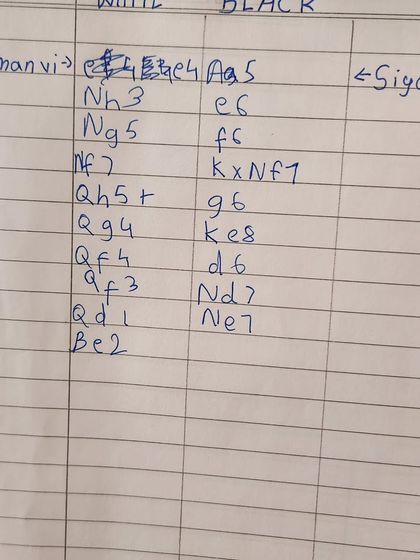 WHITE BLACK
manvi→ e4 Aa5 ←Siya
Nh3 e6
Ng5 f6
Nf7 KxNf7
Qh5+ g6
Qg4 Ke8
Qf4 d6
Qf3 Nd7
Qd1 Ne7
Be2